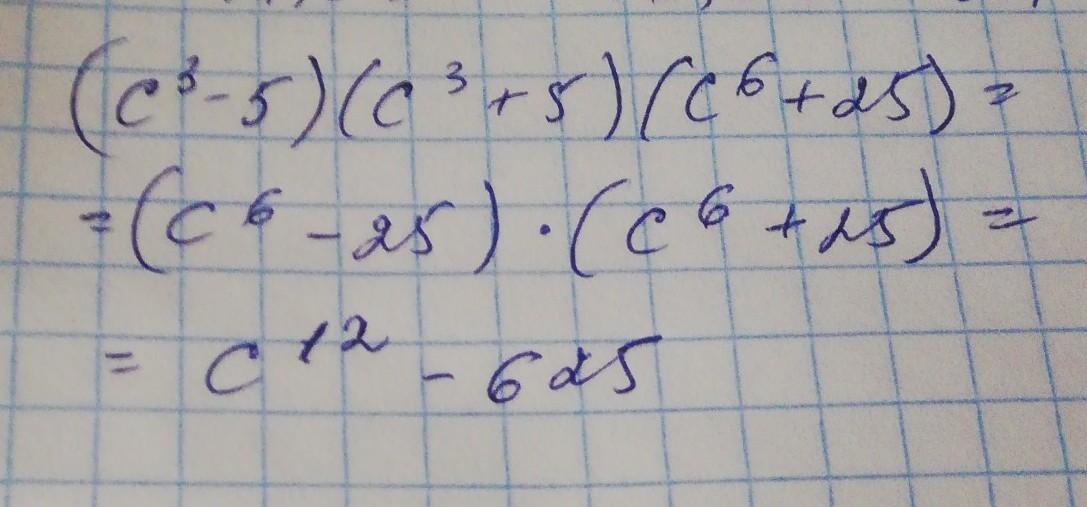 (c³-5)(c³+5)(c⁶+25)=
=(c⁶-25)·(c⁶+25)=
=c¹²-625